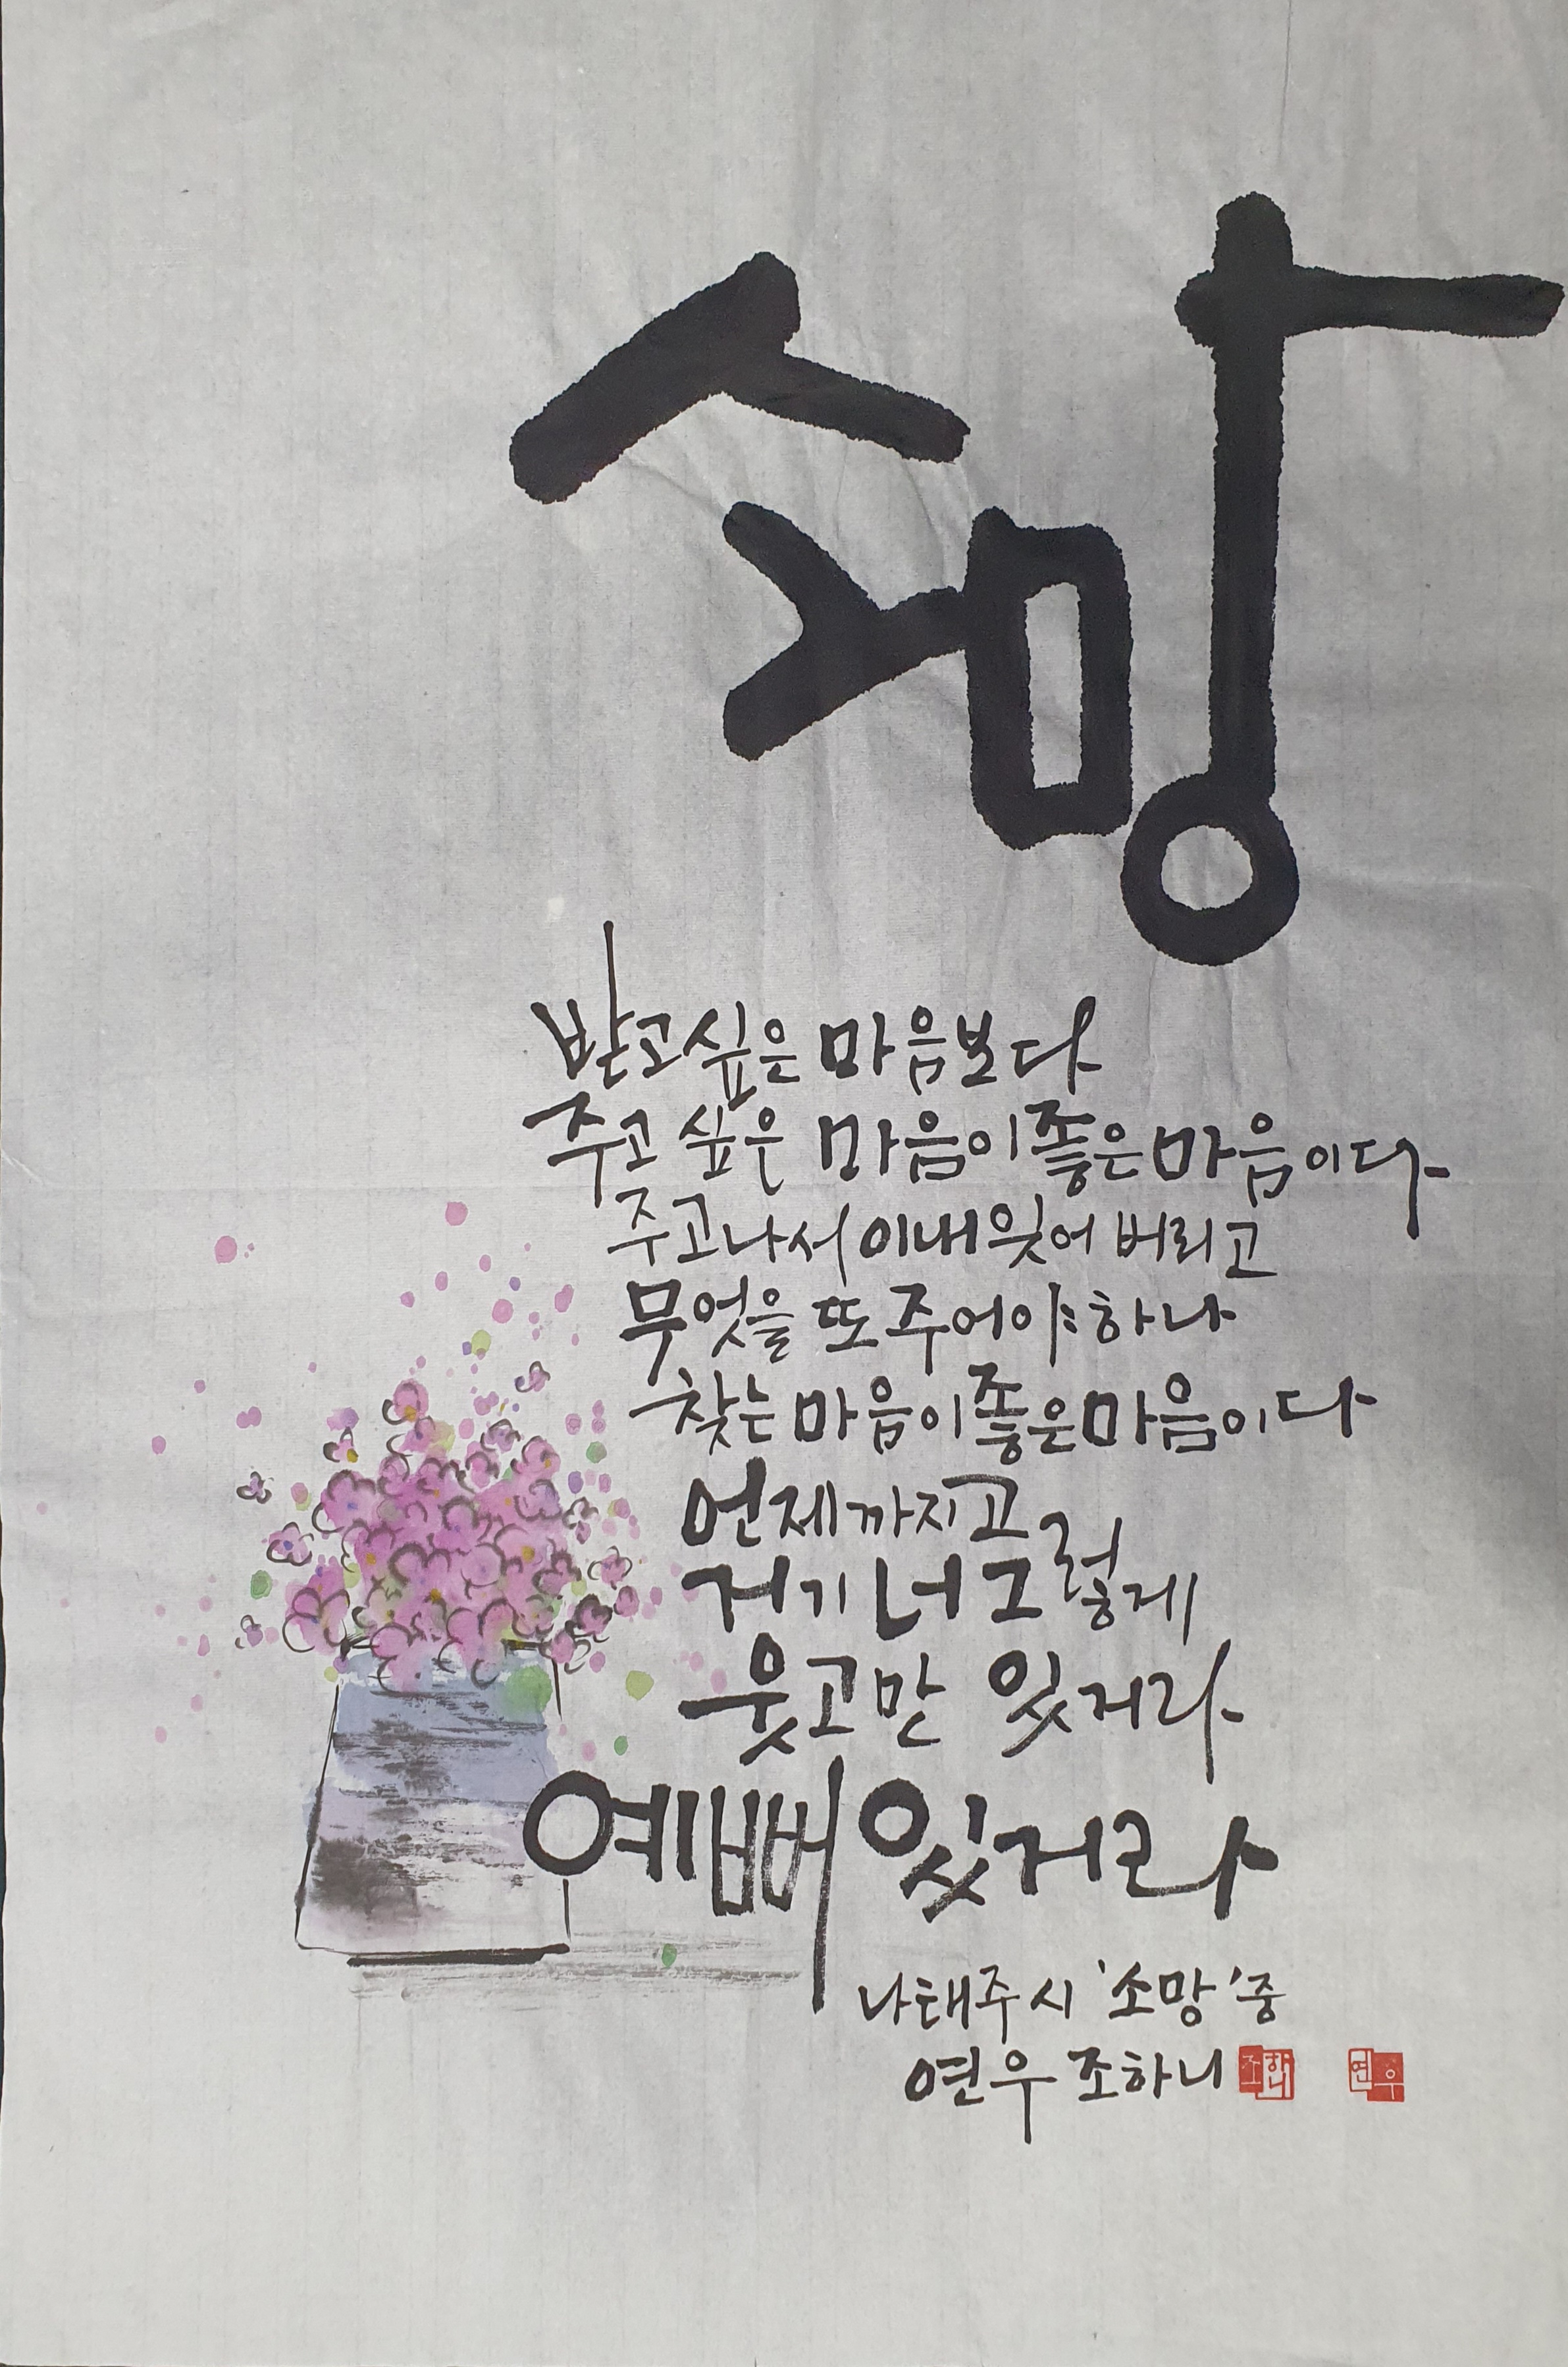 소망
받고 싶은 마음보다
주고 싶은 마음이 좋은 마음이다
주고 나서 이내 잊어 버리고
무엇을 또 주어야 하나
찾는 마음이 좋은 마음이다
언제까지고
거기 너 그렇게
웃고만 있거라
예뻐 있거라
나태주 시 '소망' 중
연우 조하니
조하니 연우